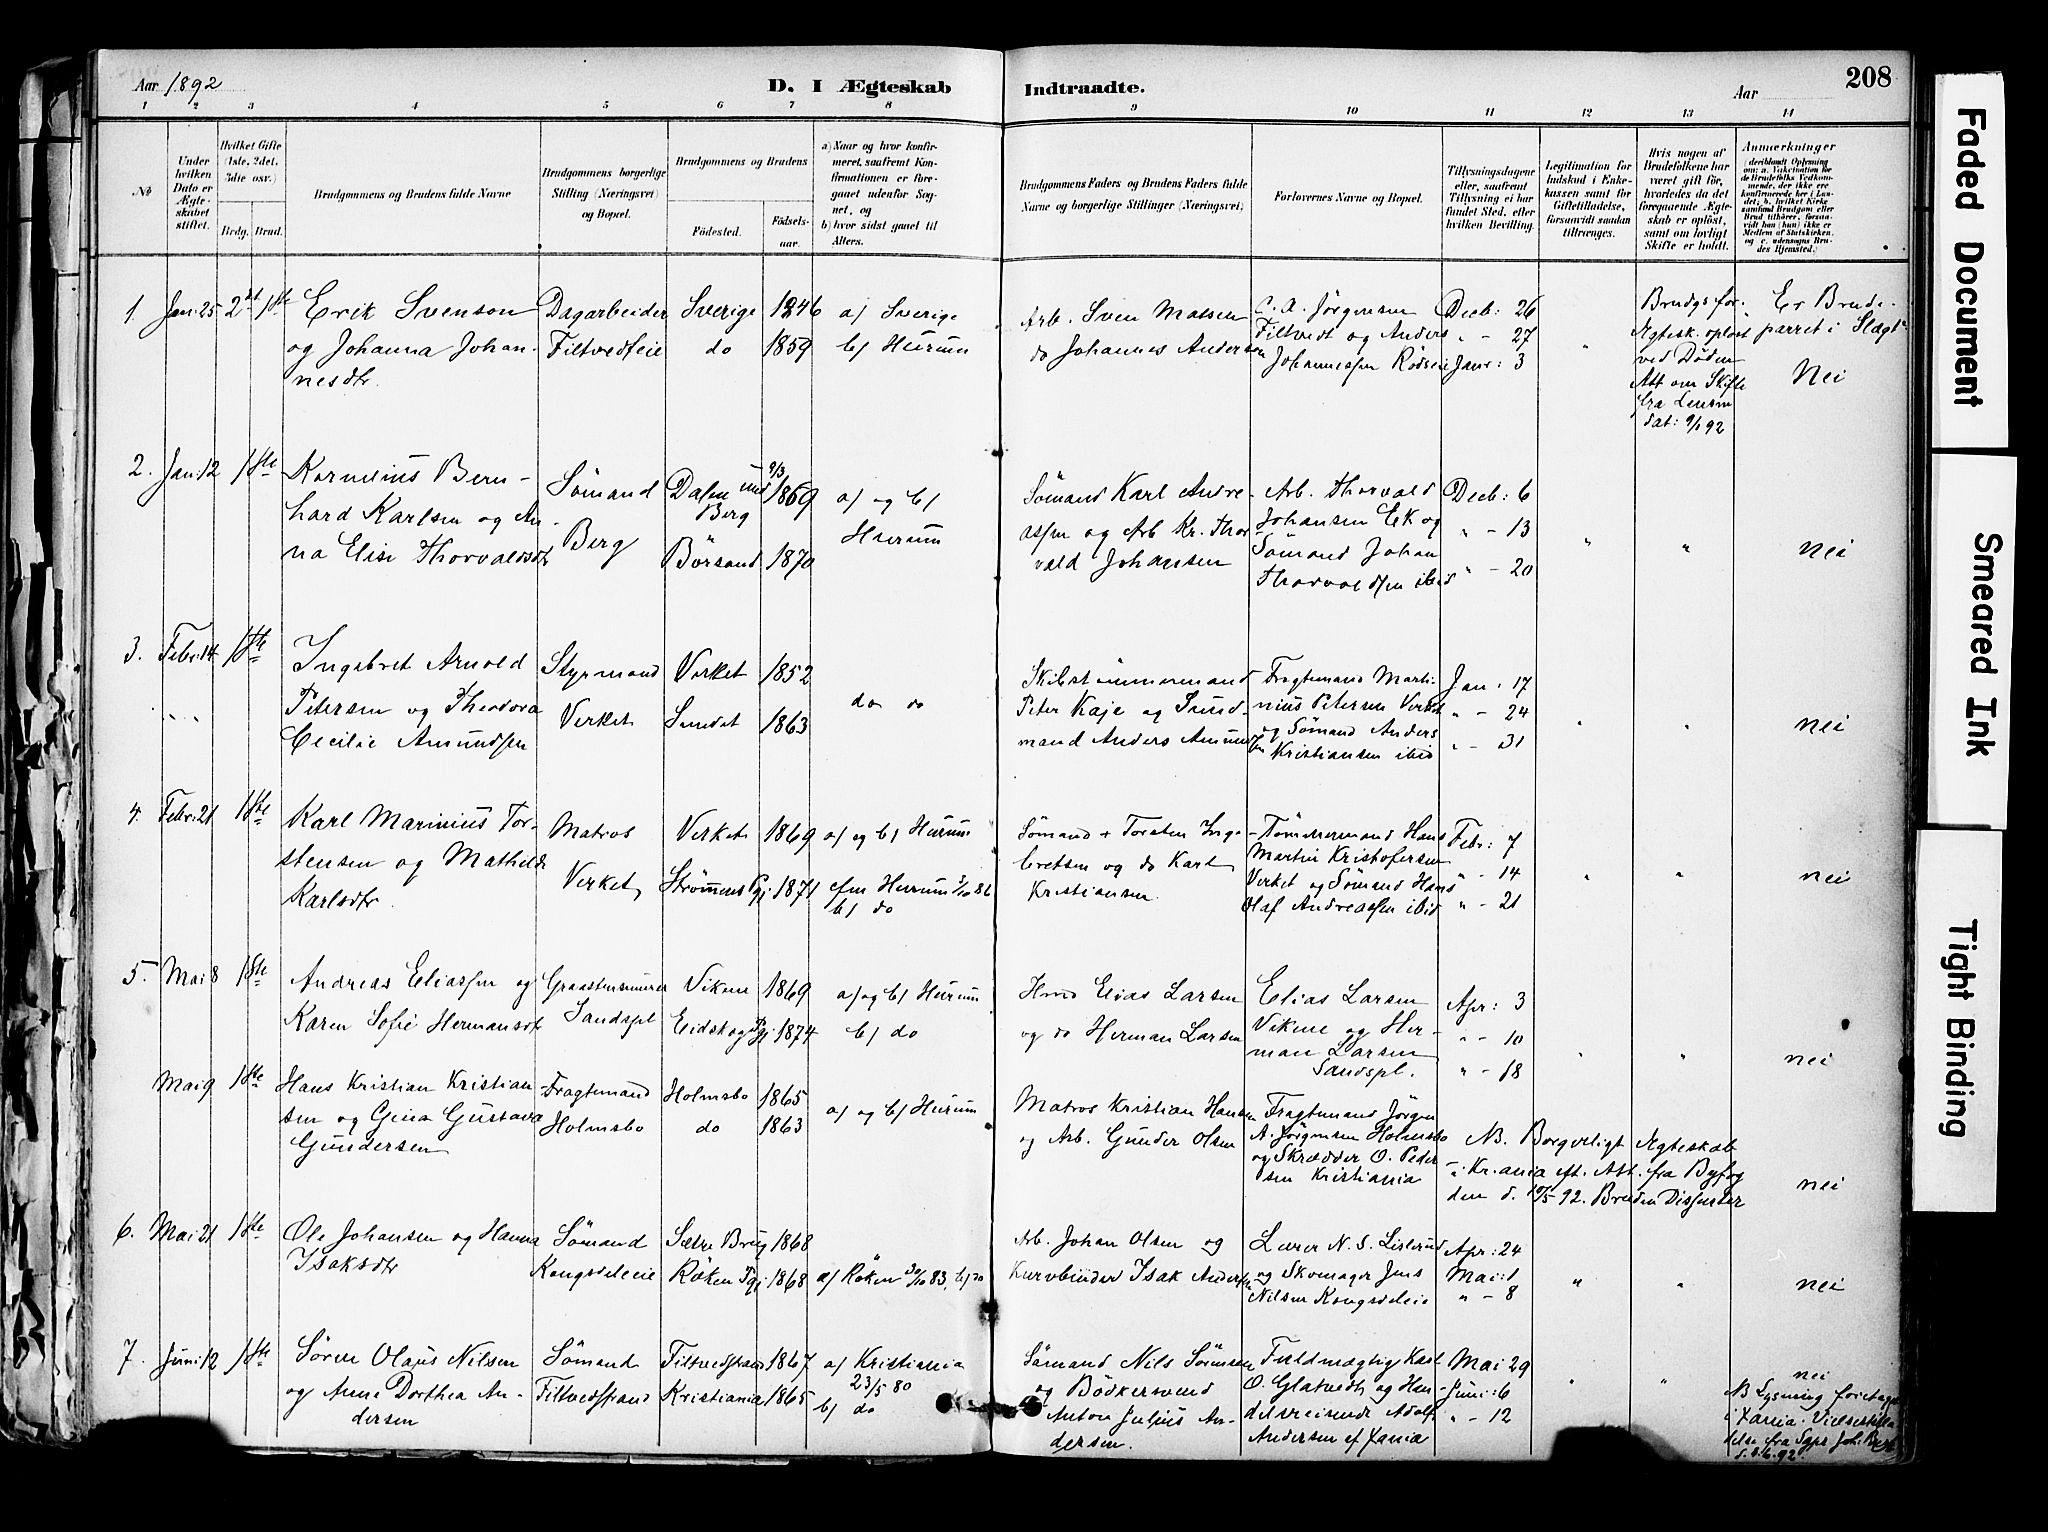 Aar 1892
D. I Ægteskab Indtraadte.
Aar
208
1 2 3 4 5 6 7 8 9 10 11 12 13 14
No
Under hvilken Dato er Ægteskabet stiftet.
Hvilket Gifte (1ste, 2det, 3dte osv.)
Brdg. Brud.
Brudgommens og Brudens fulde Navne
Brudgommens borgerlige Stilling (Næringsvei) og Bopæl.
Brudgommens og Brudens
Fødested.
Fødselsaar.
a) Naar og hvor konfirmeret, saafremt Konfirmationen er foregaaet udenfor Sognet, og
b) hvor sidst gaaet til Alters.
Brudgommens Faders og Brudens Faders fulde Navne og borgerlige Stillinger (Næringsvei)
Forlovernes Navne og Bopæl.
Tillysningsdagene eller, saafremt Tillysning ei har fundet Sted, efter hvilken Bevilling.
Legitimation for Indskud i Enkekassen samt for Giftetilladelse, forsaavidt saadan tiltrænges.
Hvis nogen af Brudefolkene har været gift før, hvorledes da det foregaaende Ægteskab er opløst, samt om lovligt Skifte er holdt.
Anmerkninger
(deriblandt Oplysning om: a. Vakcination for de Brudefolks Vedkommende, der ikke ere konfirmerede her i Landet; b. hvilket Kirkesamfund Brudgom eller Brud tilhører, forsaavidt han (hun) ikke er Medlem af Statskirken, og c. udensogns Brudes Hjemsted.)
1. Jan: 25 2det 1ste
Erik Svenson
og Johanna Johan-
nesdtr.
Dagarbeider
Filtvedteie
Sverige 1846
do 1859
a) Sverige
b) Hurum
Arb. Sven Matsen
do Johannes Andersen
C. A. Jörgensen
Filtvedt og Anders
Johannessen Rödseie
Decb: 26
" - 27
Janr: 3
"
Brudgs for.
Ægtesk. opløst
ved Døden
Att om Skifte
fra Lensm
dat: 9/1 92
Er Brude-
parret i Slægt?
Nei
2. Jan: 12 1ste
Kornelius Bern-
hard Karlsen og An-
na Elise Thorvaldsdtr
Sömand
Berg
Dalen und
Berg
9/3 1869
Börsand 1870
a) og b)
Hurum
Sömand Karl Andre-
assen og Arb Kr. Thor
vald Johansen
Arb. Thorvald
Johansen Ek og
Sömand Johan
Thorvaldsen ibid
Decb: 6
" - 13
" - 20
" " nei
3. Febr: 14 1ste
Ingebret Arnold
Petersen og Theodora
Cecilie Amundsen
Styrmand
Verket
Verket 1852
Sundet 1863
do do
Skibstömmermand
Peter Kaje og Sund-
mand Anders Amundsen
Fragtemand Marti-
nius Petersen Verket
og Sömand Anders
Kristiansen ibid
Jan: 17
" - 24
" - 31
" " nei
4. Febr: 21 1ste
Karl Marinius Tor-
stensen og Mathilde
Karlsdtr.
Matros
Verket
Verket 1869
Strömms Pgj. 1871
a) og b) Hurum
cfm Hurum 3/10 86
b) do
Sömand + Torsten Inge
bretsen og do Karl
Kristiansen.
Tömmermand Hans
Martin Kristofersen
Verket og Sömand Hans
Olaf Andreassen ibid
Febr: 7
" - 14
" - 21
" " nei
5. Mai 8 1ste
Andreas Eliassen og
Karen Sofie Hermansdtr
Graastensmurer
Sandspl
Vikene 1869
Eidskog Pgj. 1874
a) og b) Hurum
b) do
Hmd Elias Larsen
og do Herman Larsen
Elias Larsen
Vikene og Her-
man Larsen
Sandspl.
Apr: 3
" - 10
" - 18
" " nei
Mai 9 1ste
Hans Kristian Kristian
sen og Gina Gustava
Gundersen
Fragtemand
Holmsbo
Holmsbo 1865
do 1863
a) og b) Hurum
Matros Kristian Hansen
og Arb. Gunder Olsen
Fragtemand Jörgen
A. Jörgensen Holmsbo
og Skrædder O. Peder
sen Kristiania
NB. Borgerligt Ægteskab
i Kr.ania eft. Att. fra Byfog
den d. 10/5 92. Bruden Dissenter
nei
6. Mai 21 1ste
Ole Johansen og Hanna
Isaksdtr
Sömand
Kongsdeleie
Sætre Brug 1868
Röken Pgj 1868
a) Röken 30/10 83. b) do
Arb. Johan Olsen og
Kurvbinder Isak Andersen
Lærer N. S. Lislerud
og Skomager Jens
Nilsen Kongsdeleie
Apr: 24
Mai: 1
" - 8
" " nei
7. Juni: 12 1ste
Sören Olaus Nilsen
og Anna Dorthea An-
dersen
Sömand
Filtvedstrand
Filtvedstrand 1867
Kristiania 1865
a) Kristiania
23/5 80
b) do
Sömand Nils Sörensen
og Bödkersvend
Anton Julius An-
dersen.
Fuldmægtig Karl
O. Glatvedt og Han-
delsreisende Adolf
Andersen af Xania
Mai 29
Juni: 6
" - 12
" "
nei
NB Lysning foretaget
i Xania. Vielsestilla
delse fra Sgpr Joh.
d. 8.6.92.
Faded Document
Smeared Ink
Tight Binding